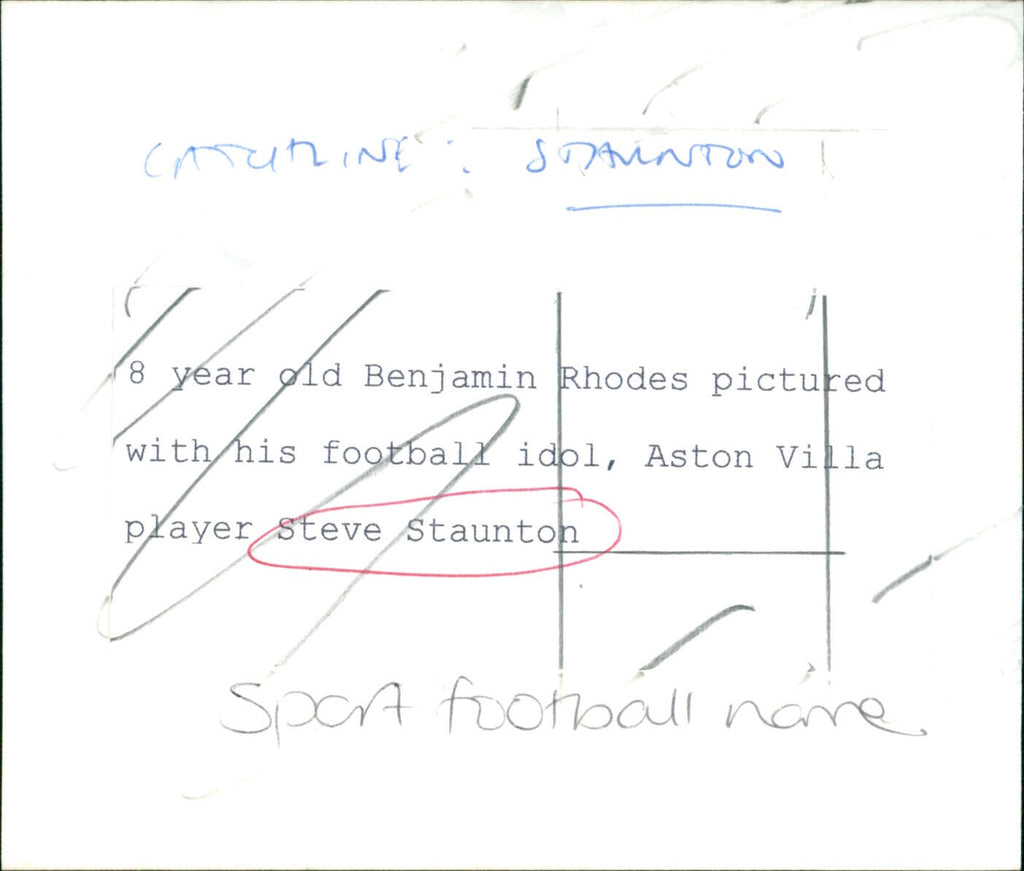 CATCHLINE: STAUNTON
8 year old Benjamin Rhodes pictured
with his football idol, Aston Villa
player Steve Staunton
Sport football name